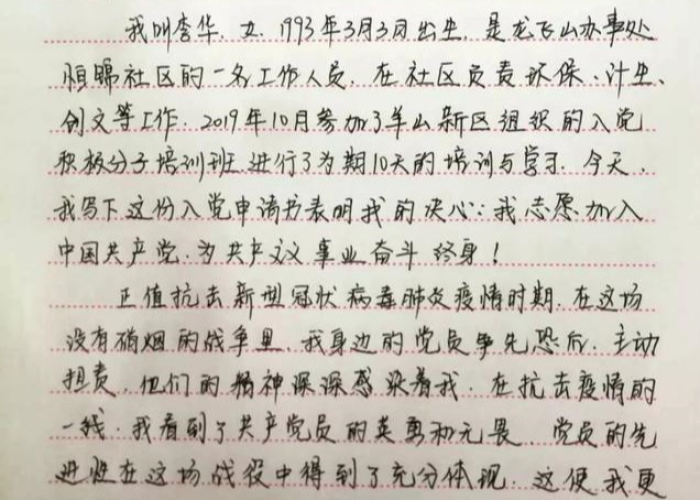 我叫李华，女，1993年3月3日出生，是龙飞山办事处
恒锦社区的一名工作人员，在社区负责环保、计生、
创文等工作。2019年10月参加了羊山新区组织的入党
积极分子培训班，进行了为期10天的培训与学习。今天，
我写下这份入党申请书表明我的决心：我志愿加入
中国共产党，为共产主义事业奋斗终身！
正值抗击新型冠状病毒肺炎疫情时期，在这场
没有硝烟的战争里，我身边的党员争先恐后，主动
担责，他们的精神深深感染着我。在抗击疫情的
一线，我看到了共产党员的英勇和无畏，党员的先
进性在这场战役中得到了充分体现，这使我更